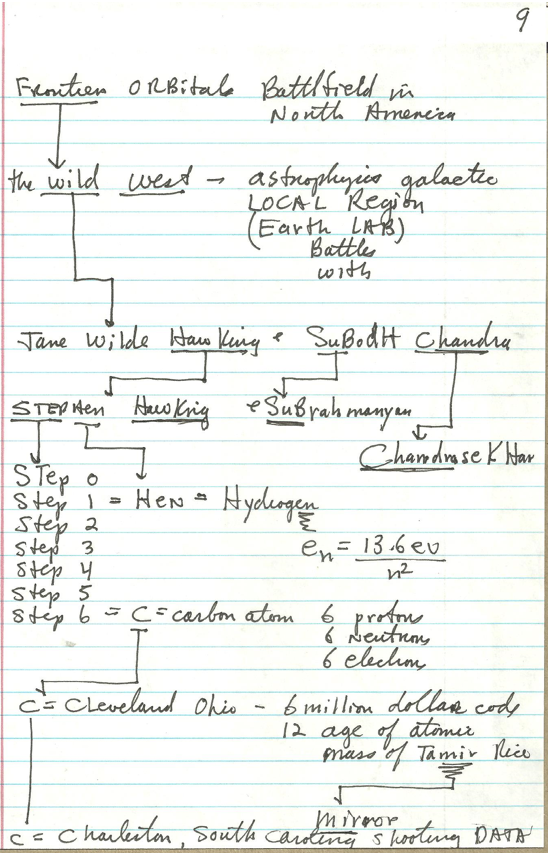 9
Frontier ORBitals Battlfield in
North America
the wild west → astrophysics galactic
LOCAL Region
(Earth LAB)
Battles
with
Jane Wilde Hawking & SuBodH Chandra
STEPHen Hawking & SuBrahmanyan
ChandraseKHar
STep 0
Step 1 = HeN = Hydrogen
Step 2
Step 3 en = 13.6 ev / n²
Step 4
Step 5
Step 6 = C = carbon atom 6 protons
6 Neutrons
6 electrons
C = Cleveland Ohio - 6 million dollar code
12 age of atomic
mass of Tamir Rice
Mirror
C = Charleston, South Carolina shooting DATA